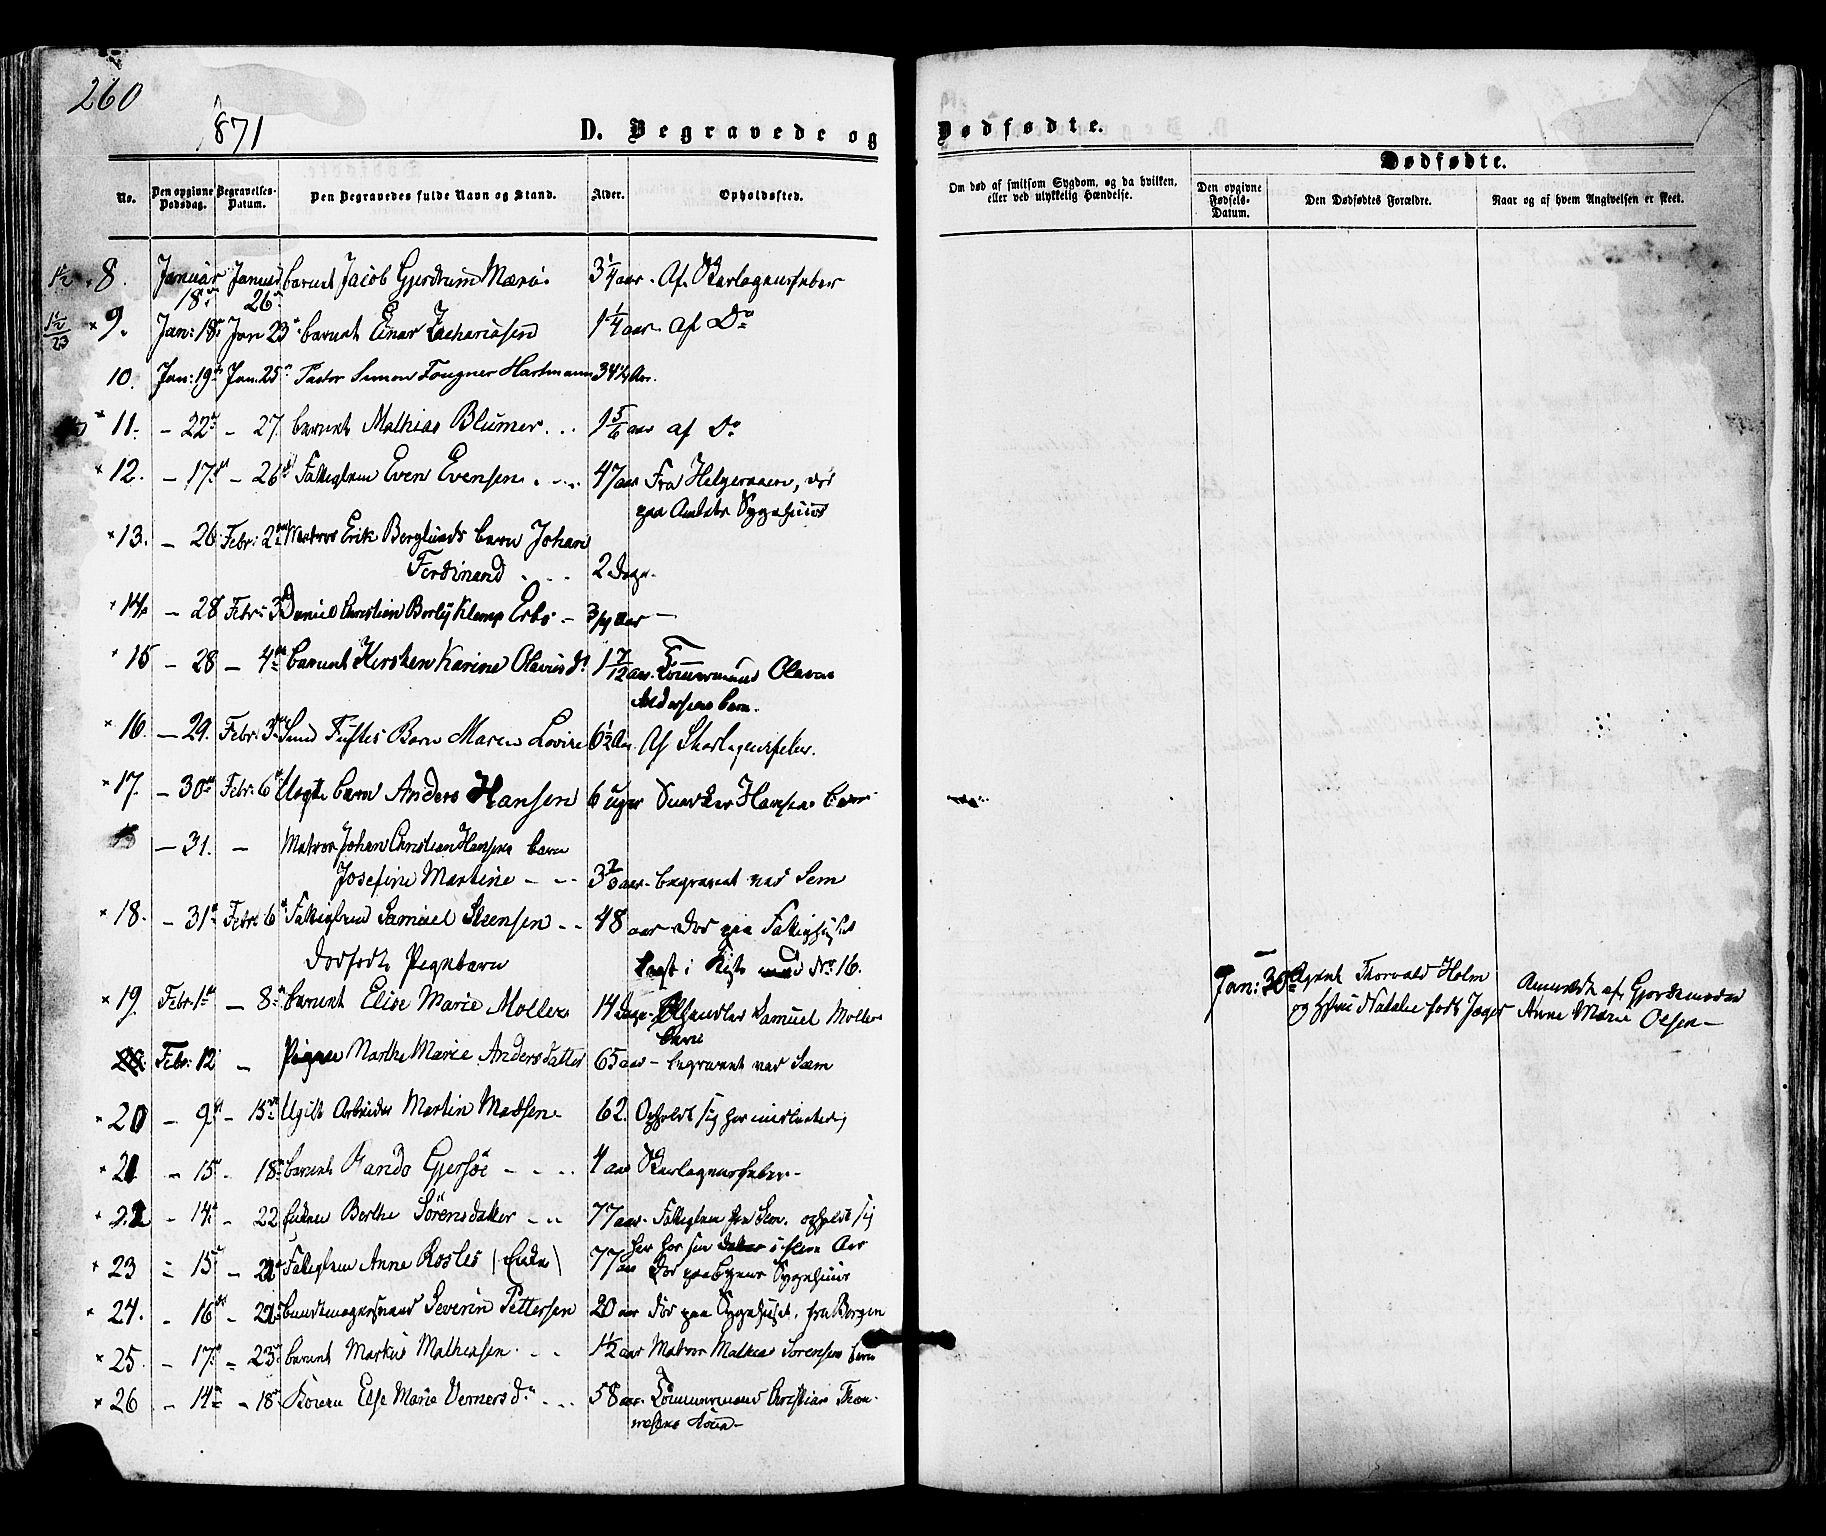 260
1871
D. Begravede og
Dødfødte.
Dødfødte.
No.
Den opgivne Dødsdag.
Begravelses-Datum.
Den Begravedes fulde Navn og Stand.
Alder.
Opholdssted.
Om død af smitsom Sygdom, og da hvilken, eller ved ulykkelig Hændelse.
Den opgivne Fødsels-Datum.
Den Dødfødtes Forældre.
Naar og af hvem Angivelsen er skeet.
8. Januar 18 Januar 26 barnet Jacob Gjerdrum 3 1/4 aar. Af Skarlagensfeber
9. Jan: 18 Jan 23 barnet Einar Zachariasen 1 1/4 aar. af Do
10. Jan: 19 Jan. 25 Pastor Simon Fougner Hartmann 34 1/2 Aar.
11. – 22 – 27. barnet Mathias Blumer 1 5/6 aar af Do
12. – 17 – 26 Fattiglem Even Evensen 47 aar Fra Helgeroaen, død
paa Amtets Sygehuus
13. – 26 Febr: 2 Matros Erik Berglunds barn Johan
Ferdinand 2 Dage.
14. – 28 Febr: 3 Daniel Christian Klemp Erbo – 3/4 aar –
15 – 28 – 4 barnet Kirsten Karine Olavusd. 1 7/12 aar. Tømmermand Olavus
Andersens barn.
16. – 29. Febr: 3 Barn Maren Lovise 6 1/2 Aar. Af Skarlagensfeber.
17. – 30 Febr: 6 Uægte barn Anders Hansen 6 uger Snedker Hansens barn
– 31. – Matros Johan Christian Hansens barn
Josefine Martine – – begravet ved Sem
18. – 31 Febr: 6 Fattiglem Samuel Steensen – – 48 aar død paa Fattighuset
Dødfødt Pigebarn
i Kiste med No 16.
Jan: 30 Agent Thorvald Holm
og Hustru Natalie født Jæger
Anmeldt af Gjordemoder
Anne Marie Olsen –
19. Febr. 1 – 8 barnet Elise Marie Møller 14 Dage. Handler Samuel Møllers
barn
20. Febr: 12 – Pigen Marthe Marie Andersdatter 65 aar – begravet ved Sem
20 – 9 – 15 Ugift Arbeider Martin Madsen 62. Opholdt sig her midlertidig
21 – 15 – 18 barnet Rando Gjersøe – – – 4 aar Skarlagensfeber –
22 – 14 – 22 Enken Berthe Sørensdatter – – 77 aar. Fattiglem fra Sem. opholdt sig
her hos sin datter i flere Aar
23 – 15 – 22 Fattiglem Anne Røsles (Enke) 77 aar Død paa Byens Sygehuus
24. – 16 – 22 Bundtmagersvend Severin Pettersen 20 aar død paa Sygehuset, fra Bergen
25 – 17 – 23 barnet Markus Mathiasen – – 1 1/2 aar Matros Mathias Sørensens barn
26 – 14 – 18 Konen Else Marie Vernersd. – – 58 aar. Tømmermand Christian
Kone –